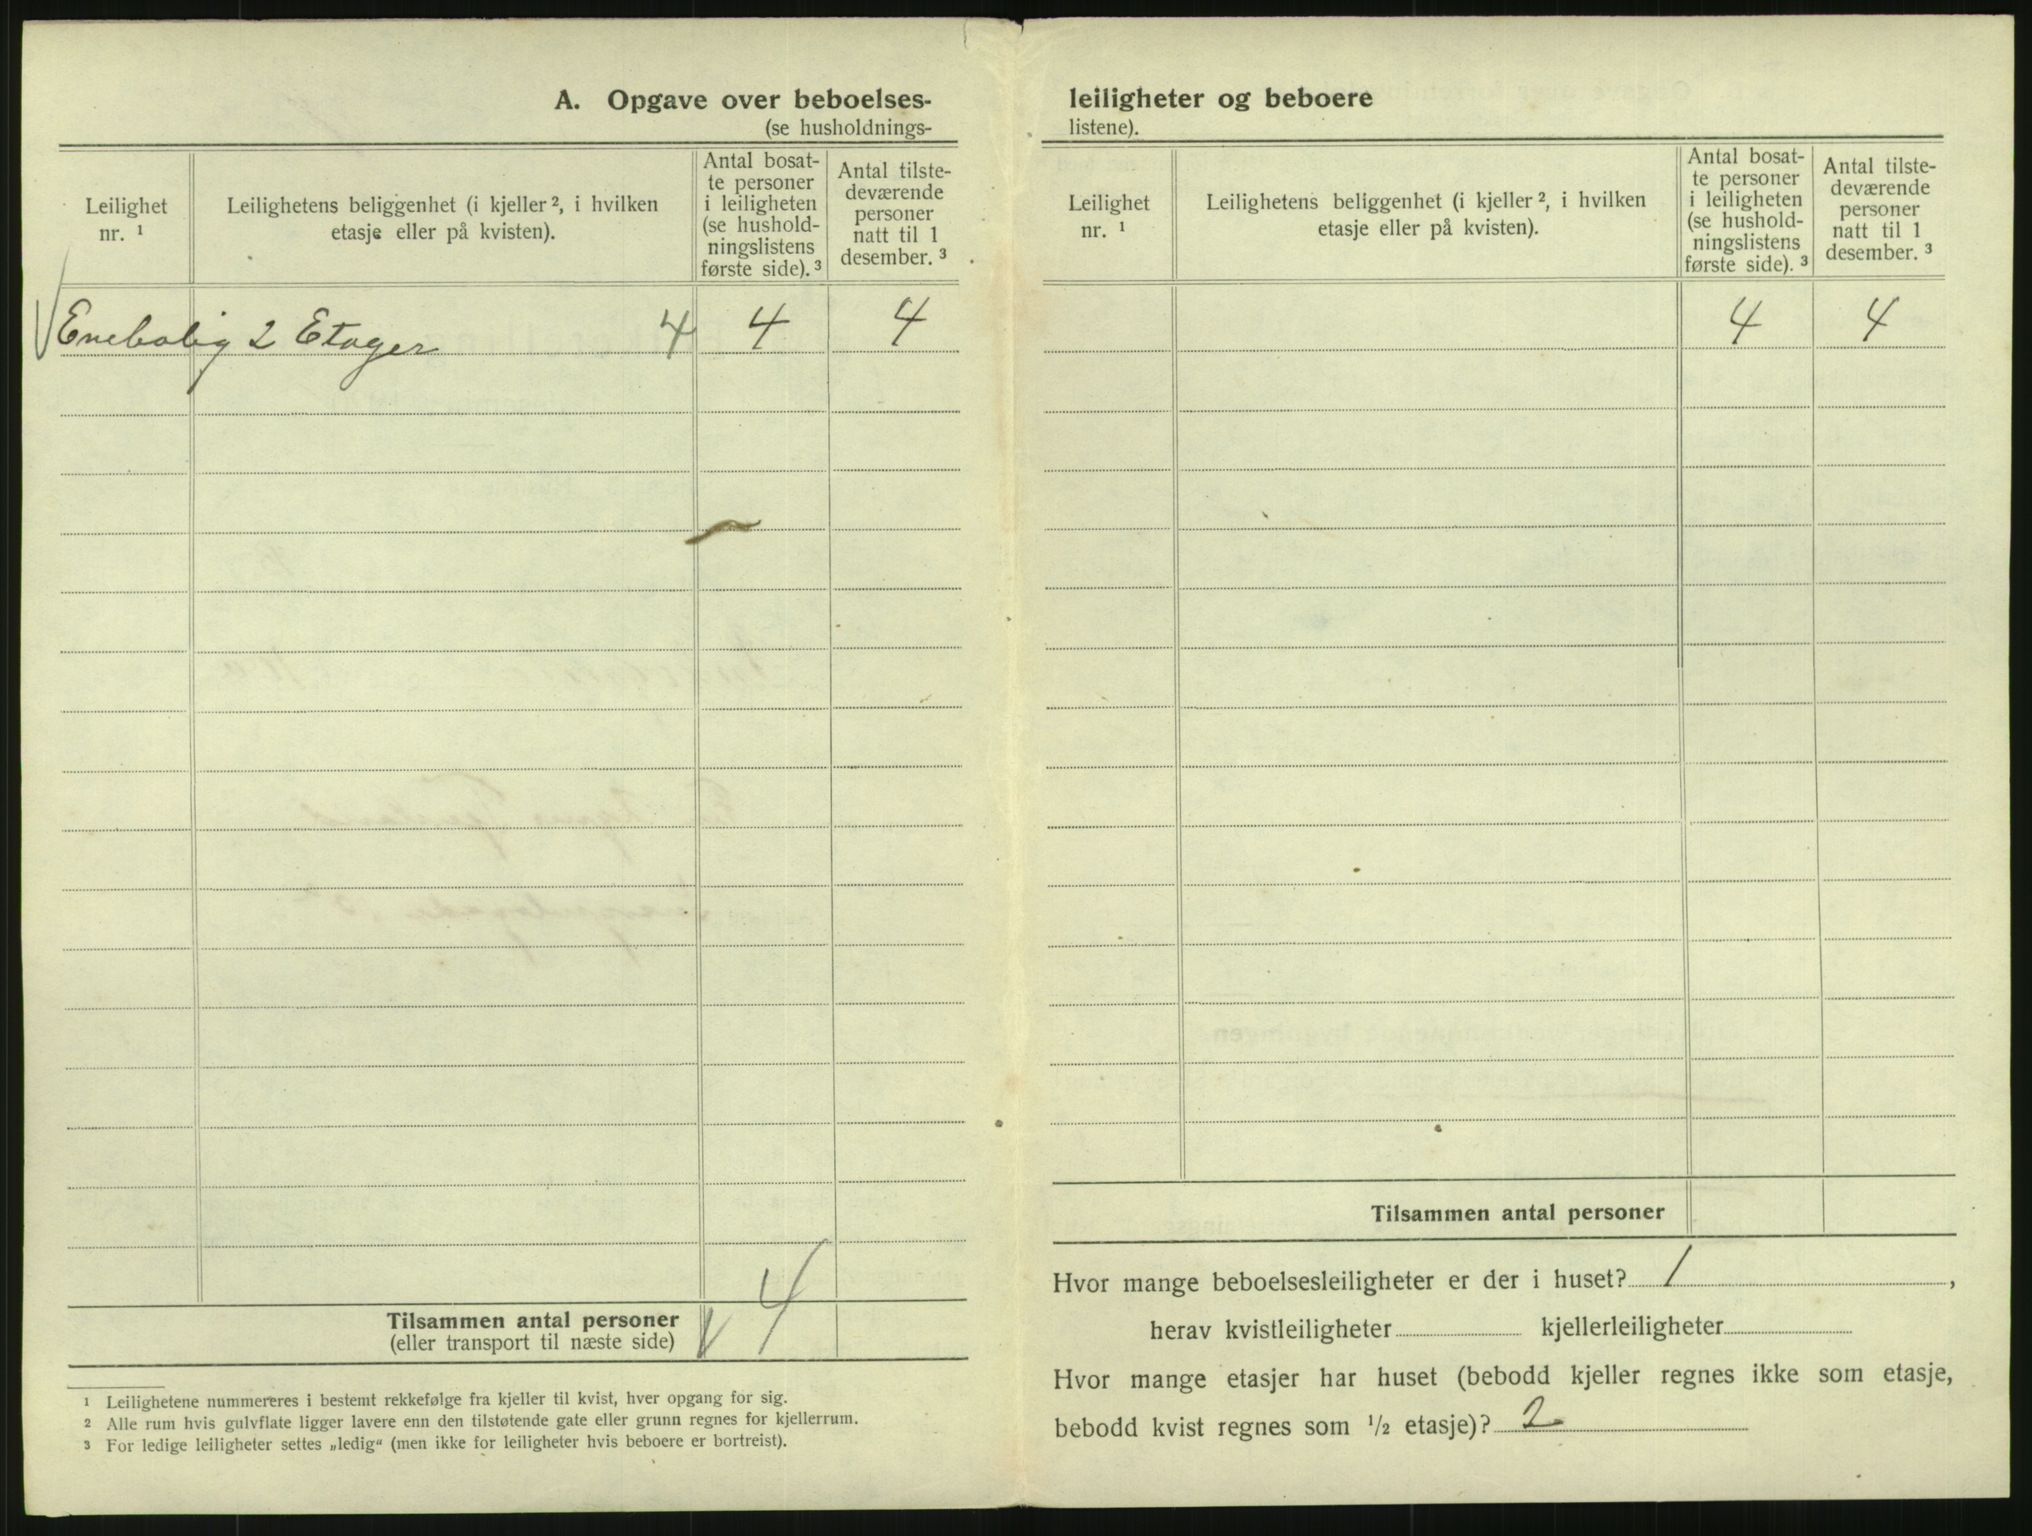 A. Opgave over beboelses-
(se husholdnings-
Leilighet
nr. ¹
Leilighetens beliggenhet (i kjeller ², i hvilken
etasje eller på kvisten).
Antal bosat-
te personer
i leiligheten
(se hushold-
ningslistens
første side). ³
Antal tilste-
deværende
personer
natt til 1
desember. ³
Enebolig 2 Etager 4 4 4
4
Tilsammen antal personer
(eller transport til næste side)
¹ Leilighetene nummereres i bestemt rekkefølge fra kjeller til kvist, hver opgang for sig.
² Alle rum hvis gulvflate ligger lavere enn den tilstøtende gate eller grunn regnes for kjellerrum.
³ For ledige leiligheter settes „ledig“ (men ikke for leiligheter hvis beboere er bortreist).
leiligheter og beboere
listene).
Leilighet
nr. ¹
Leilighetens beliggenhet (i kjeller ², i hvilken
etasje eller på kvisten).
Antal bosat-
te personer
i leiligheten
(se hushold-
ningslistens
første side). ³
Antal tilste-
deværende
personer
natt til 1
desember. ³
4 4
Tilsammen antal personer
Hvor mange beboelsesleiligheter er der i huset? 1,
herav kvistleiligheter kjellerleiligheter
Hvor mange etasjer har huset (bebodd kjeller regnes ikke som etasje,
bebodd kvist regnes som ½ etasje)? 2